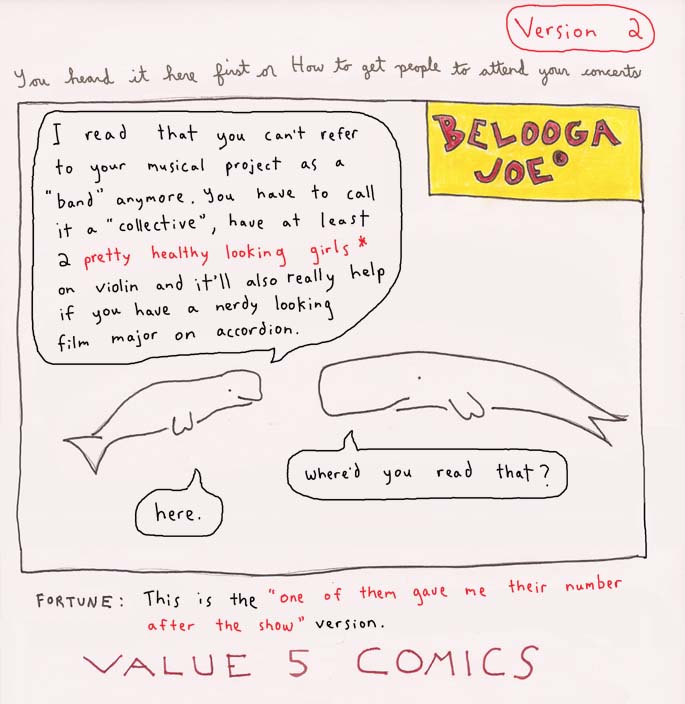 Version 2
You heard it here first or How to get people to attend your concerts
BELOOGA
JOE®
I read that you can't refer
to your musical project as a
"band" anymore. You have to call
it a "collective", have at least
2 pretty healthy looking girls*
on violin and it'll also really help
if you have a nerdy looking
film major on accordion.
where'd you read that?
here.
FORTUNE: This is the "one of them gave me their number
after the show" version.
VALUE 5 COMICS